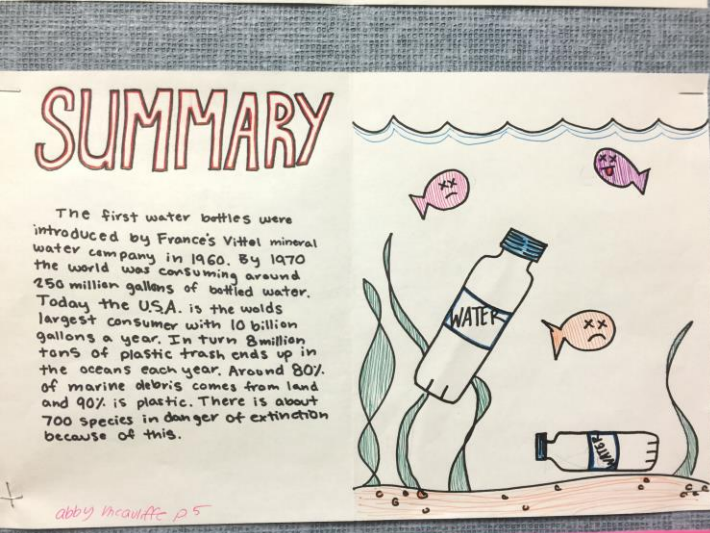 SUMMARY
The first water bottles were
introduced by France's Vittel mineral
water company in 1960. By 1970
the world was consuming around
250 million gallons of bottled water.
Today the U.S.A. is the wolds
largest consumer with 10 billion
gallons a year. In turn 8million
tons of plastic trash ends up in
the oceans each year. Around 80%
of marine debris comes from land
and 90% is plastic. There is about
700 species in danger of extinction
because of this.
abby mcauliffe p5
WATER
WATER